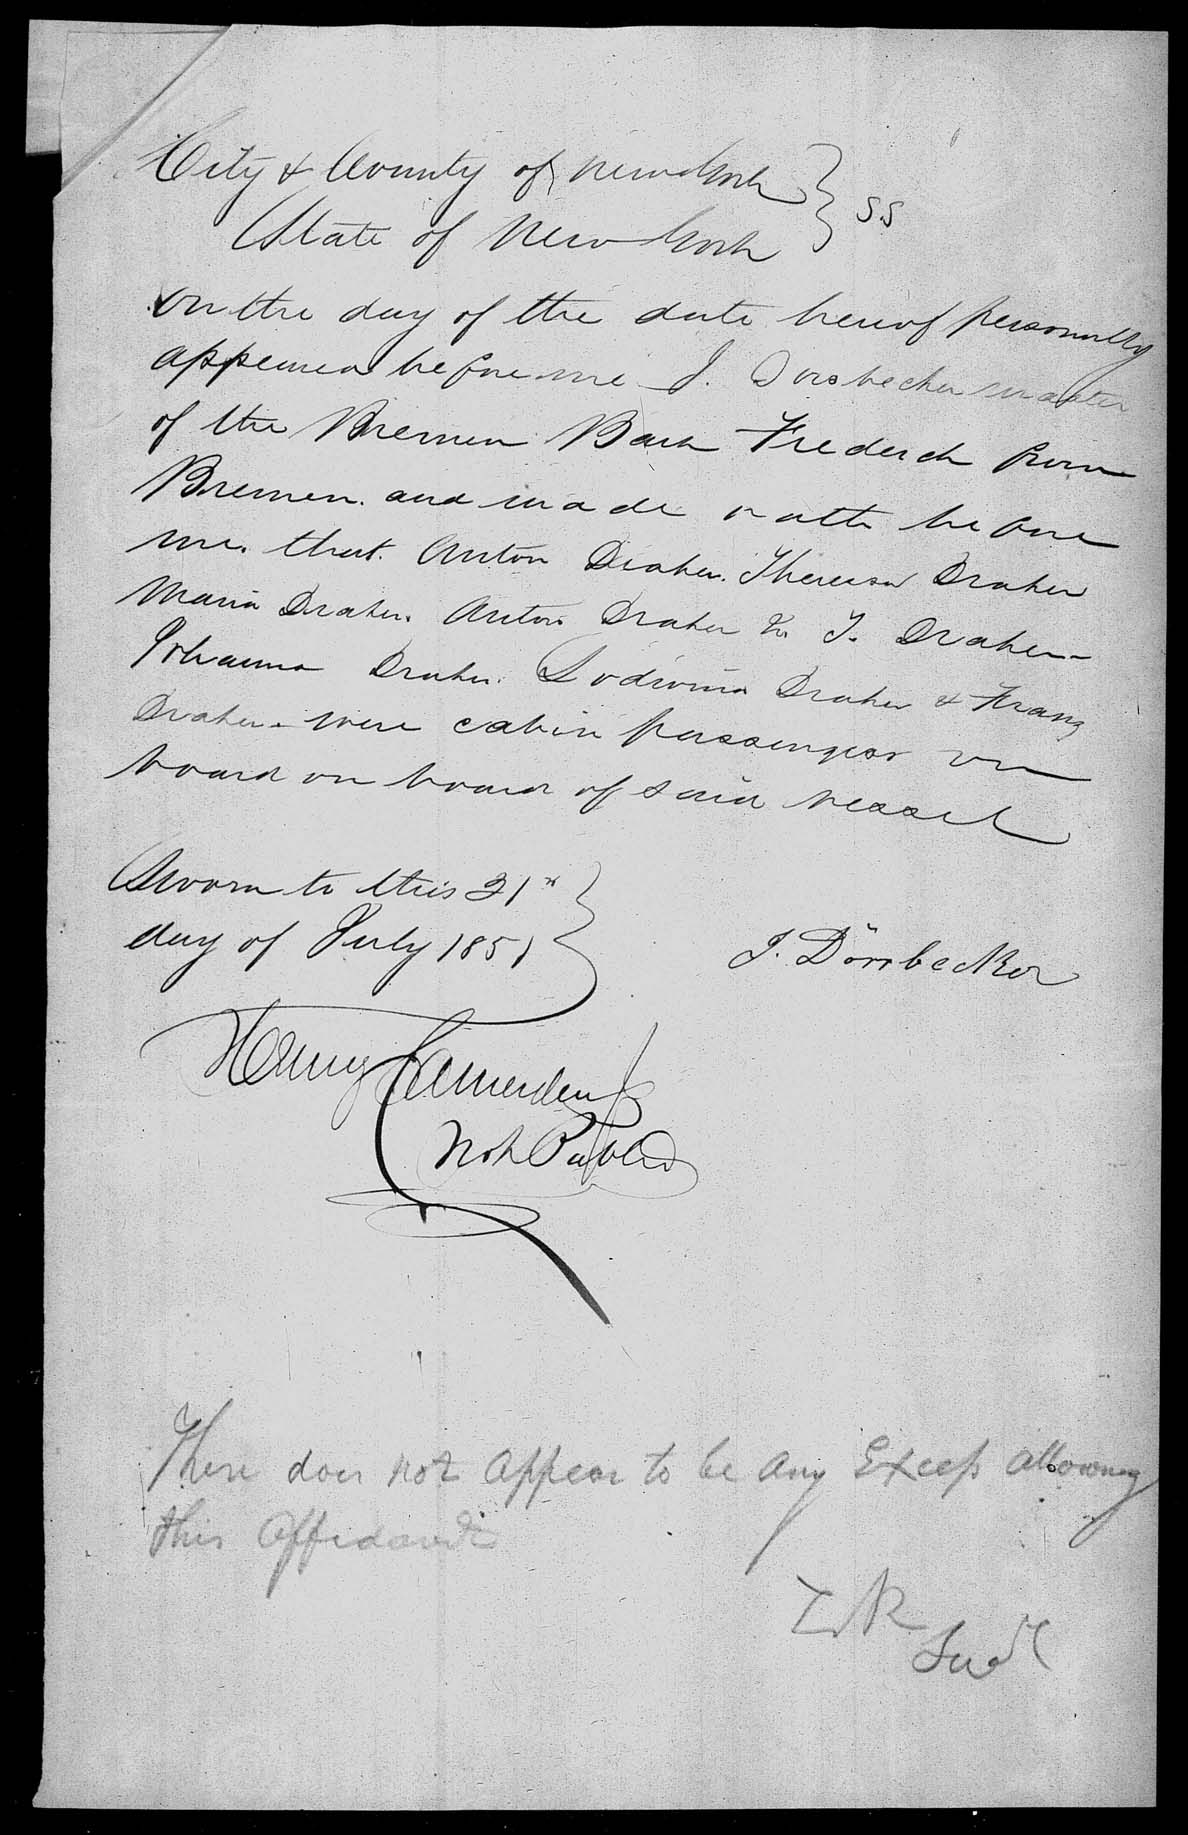 City & County of New York } SS
State of New York
On the day of the date hereof personally
appeared before me J. Dorsbecher master
of the Bremen Bark Frederch from
Bremen. and made oath before
me. that. Anton Draher. Theresa Draher
Maria Draher. Anton Draher Jr. T. Draher
Johanna Draher. Lodwina Draher & Franz
Draher - were cabin passengers on
board on board of said vessel
Sworn to this 21st
day of July 1851
J. Dörsbecker
Henry Camerden Jr
Not Public
There does not appear to be any Excess allowing
this Affidavit